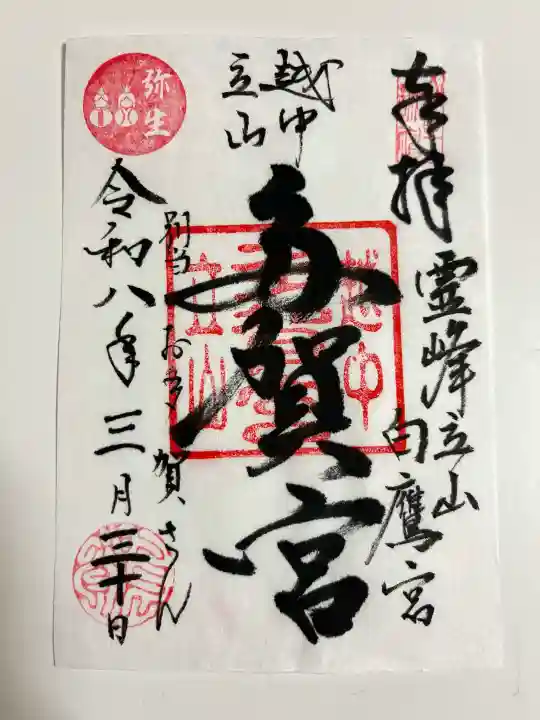 奉拝
霊峰立山
白鷹宮
越中
立山
多賀宮
越中
立山
別当 お多賀さん
弥生
令和八年三月三十日